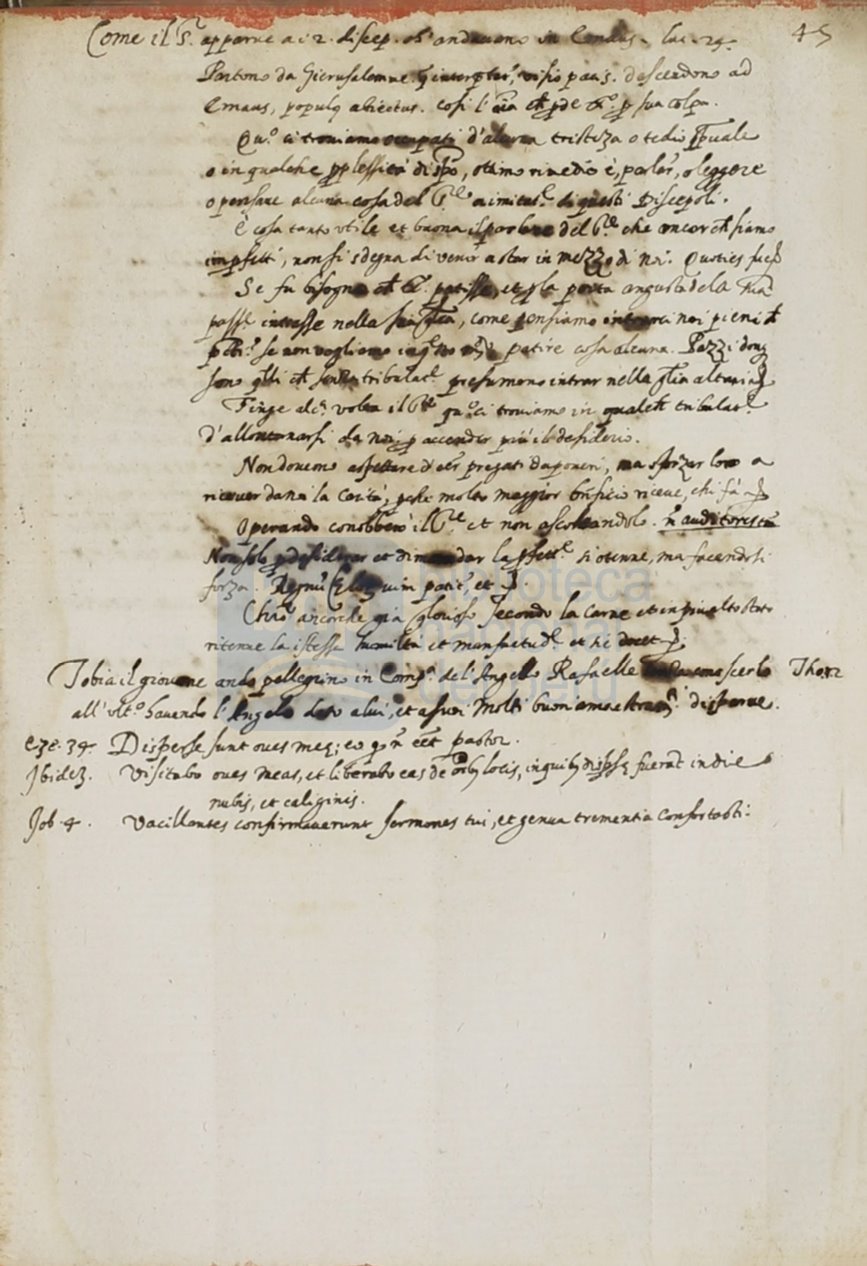 45
Come il S.r apparve a i 2. discep. ch' andavano in Emaus. luc. 24.
Partono da Gierusalemme, q interptr, visio pacis. descendono ad
Emaus, populq abiectus. cosi l' aia ch pde X.o p sua colpa.
Qn.o ci troviamo occupati d'alcuna tristeza o tedio spuale
o in qualche pplessità di spo, ottimo rimedio è, parlar, o leggere
o pensare alcuna cosa del S.re a imitat.e di questi Discepoli.
È cosa tanto utile et buona il parlare del S.re che ancor ch siamo
impfetti, non si sdegna di venir a star in mezzo di noi. Quoties
Se fu bisogno ch X.o patisse, et p la porta angusta della
pass.e intrasse nella sua gla, come pensiamo intrarci noi pieni d
se non vogliamo patire cosa alcuna. Pazzi donq
sono qlli ch senza tribulat.e presumono intrar nella glia
Finge alc.a volta il S.re qn.o ci troviamo in qualch tribulat.e
d'allontanarsi da noi p accender più il desiderio.
Non dovemo aspettare d'esser pregati da poveri, ma sforzar loro a
ricever da noi la Carità, pche molto maggior bnficio riceve, chi fà
Operando conobbero il S.re et non ascoltandolo. n auditores
Non solo p desiderar et dimandar la pfett.e si ottiene, ma facendosi
forza. Regnu Celoru vim patit.r et
Chro ancorche già glorioso secondo la carne et in più alto stato
ritenne la istessa humiltà et mansuetud.e et hi docet
Tobia il giovane andò pellegrino in Comp.a de l'Angelo Rafaelle conoscerlo Thob. 12
all' ult.o havendo l'Angelo dato a lui, et a suoi molti buoni amaestram.ti disparve.
Eze. 34. Disperse sunt oves meę; eo q n eēt pastor.
Ibidē. Visitabo oves meas, et liberabo eas de oib locis, in quib dispsę fuerāt in die
nubis, et caliginis.
Job. 4. Vacillantes confirmaverunt sermones tui, et genua trementia confortasti:
biblioteca
nacional
del perú